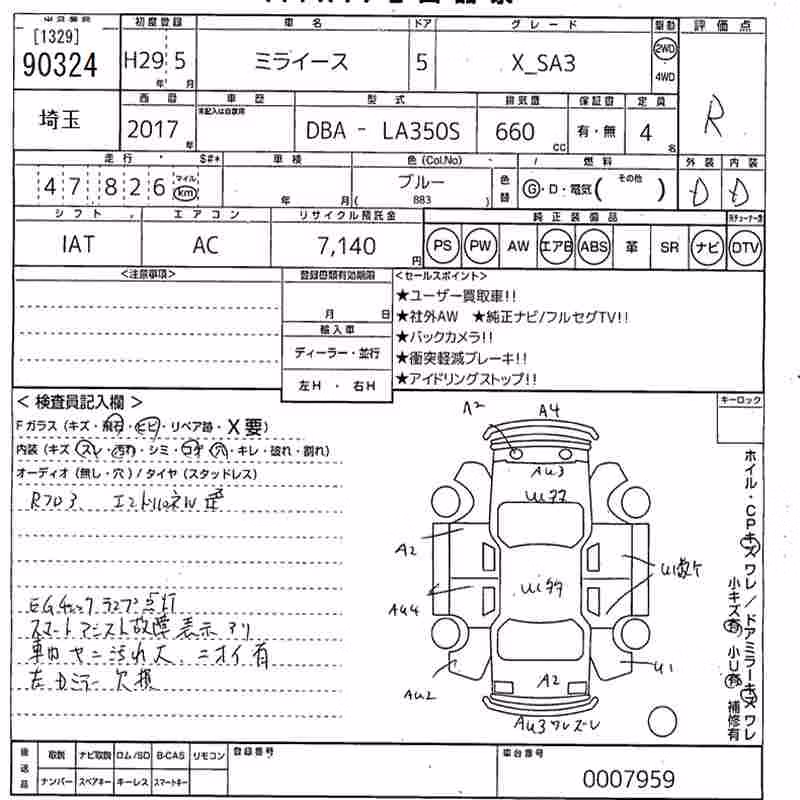 [1329]
90324
初度登録
車名
ドア
グレード
駆動
評価点
H29 5
年 月
ミライース
5
X_SA3
2WD
4WD
R
埼玉
西暦
車歴
型式
排気量
保証書
定員
未記入は自家用
2017
年
DBA - LA350S
660
CC
有・無
4
名
走行
$#*
車検
色(Col.No)
燃料
外装
内装
47826
マイル
km
年 月
ブルー
( 883 )
色替
G・D・電気( その他 )
D
D
シフト
エアコン
リサイクル預託金
純正装備品
IAT
AC
7,140
円
PS PW AW エアB ABS 革 SR ナビ DTV
<注意事項>
登録書類有効期限
月 日
輸入車
ディーラー・並行
左H ・ 右H
<セールスポイント>
★ユーザー買取車!!
★社外AW ★純正ナビ/フルセグTV!!
★バックカメラ!!
★衝突軽減ブレーキ!!
★アイドリングストップ!!
キーロック
< 検査員記入欄 >
Fガラス(キズ・飛石・ヒビ・リペア跡・X要)
内装(キズ・スレ・汚れ・シミ・コゲ・穴・キレ・破れ・割れ)
オーディオ(無し・穴)/タイヤ(スタッドレス)
EGチェックランプ点灯
スマートアシスト故障表示アリ
車内ヤニ汚れ大、ニオイ有
左Dミラー欠損
A2
A4
AU3
A2
AU4
AU2
U1
A2
AU3ワレズレ
ホイル・CPキズワレ/ドアミラーキズワレ
小キズ有 小U有 補修有
後送品
取説
ナビ取説
ロム/SD
B-CAS
リモコン
ナンバー
スペアキー
キーレス
スマートキー
登録番号
車台番号
0007959